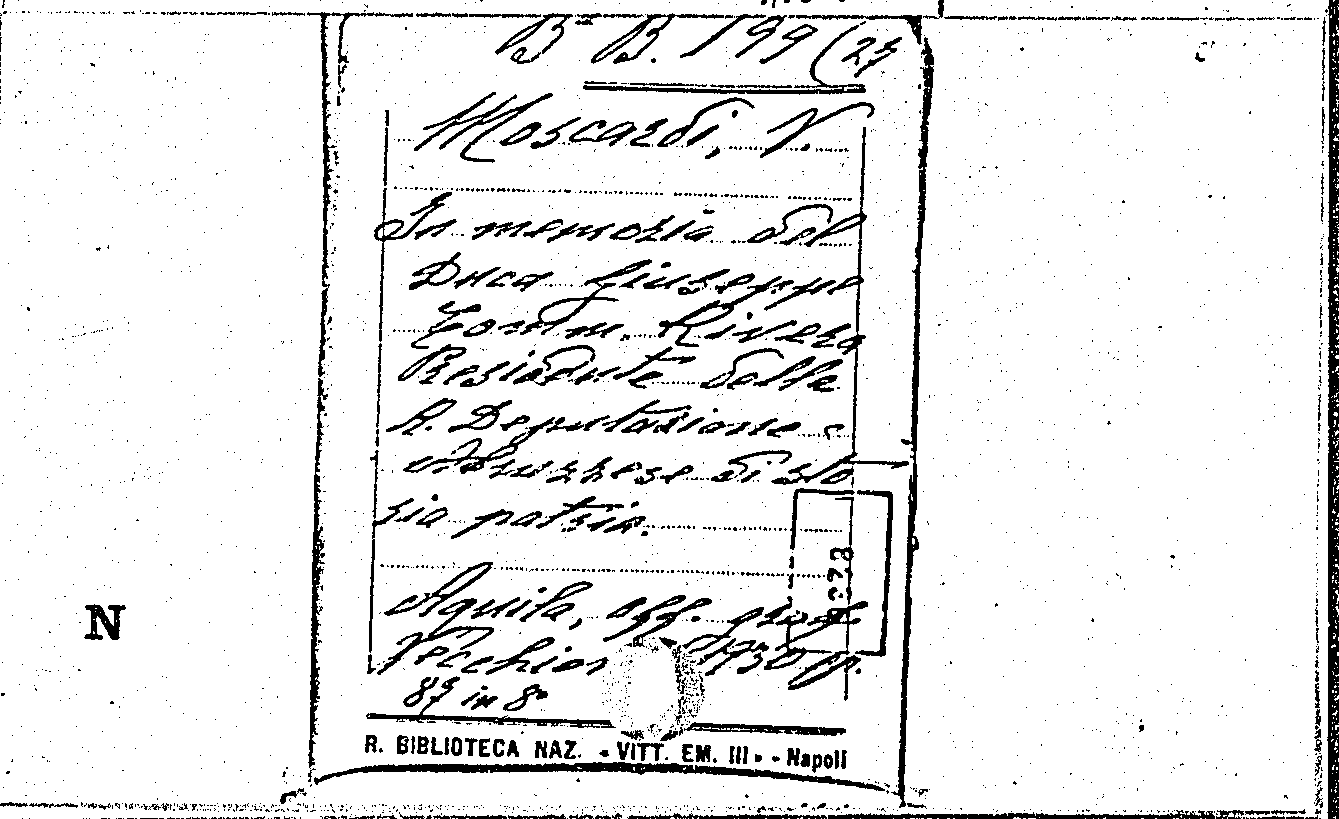 Bª B. 199 (27
Moscardi, V.
In memoria del
Duca Giuseppe
Comm. Rivera
Presidente della
R. Deputazione
Abruzzese di sto
ria patria.
Aquila, off. graf.
Vecchioni 1930 pp.
87 in 8º
R. BIBLIOTECA NAZ. « VITT. EM. III » - Napoli
N